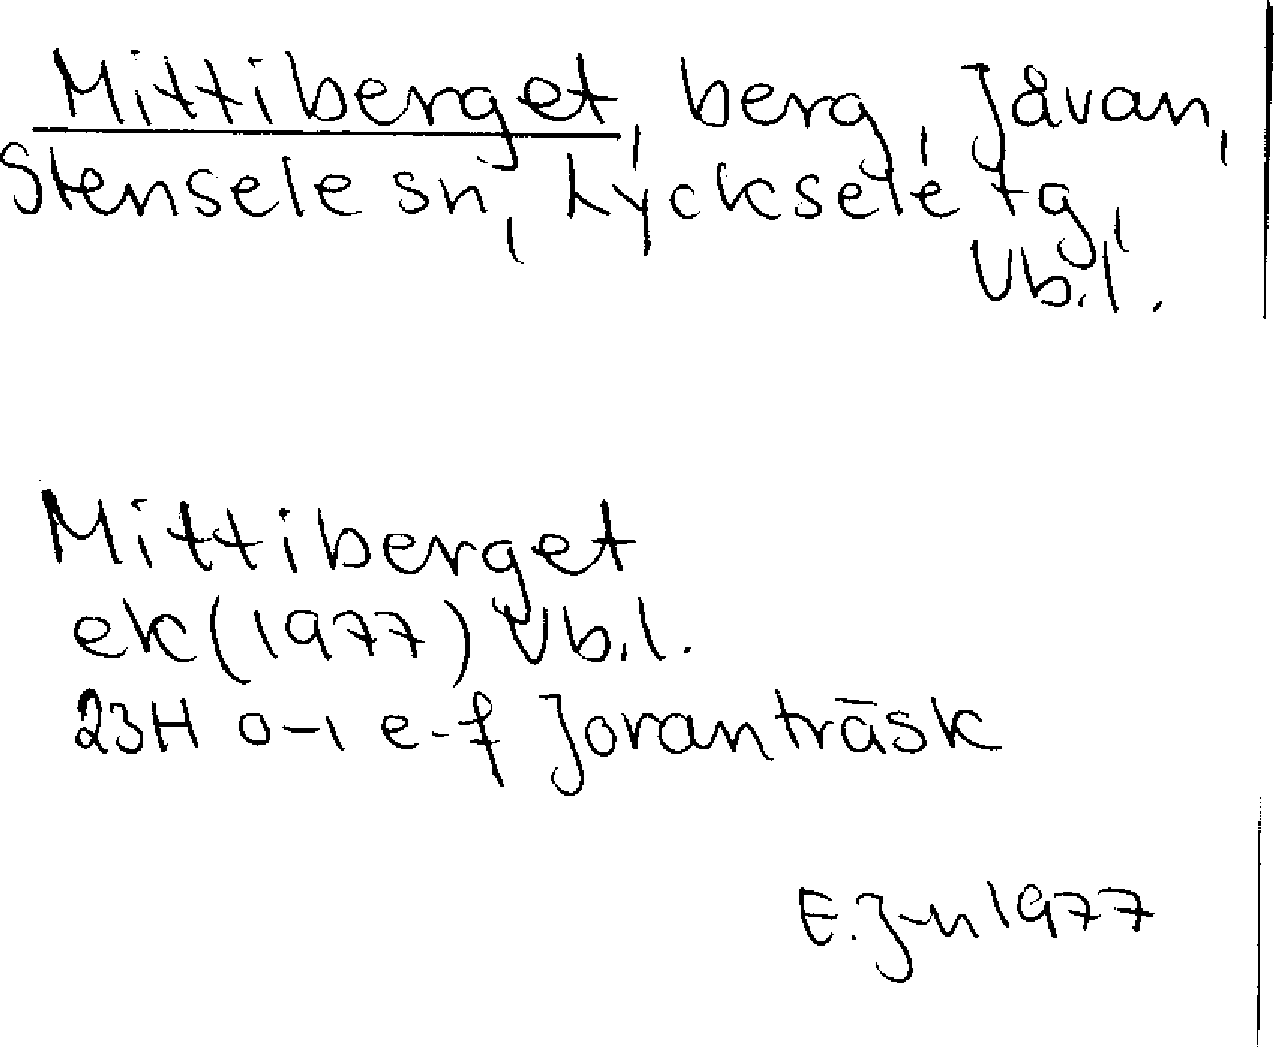 Mittiberget, berg, Jåvan,
Stensele sn, Lycksele tg,
Vb.l.
Mittiberget
ek(1977) Vb.l.
23H 0-1 e-f Joranträsk
E.J-n 1977